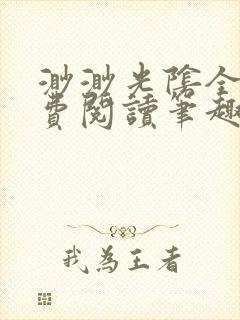 渺渺光陰全
費閱讀筆趣
我為王者